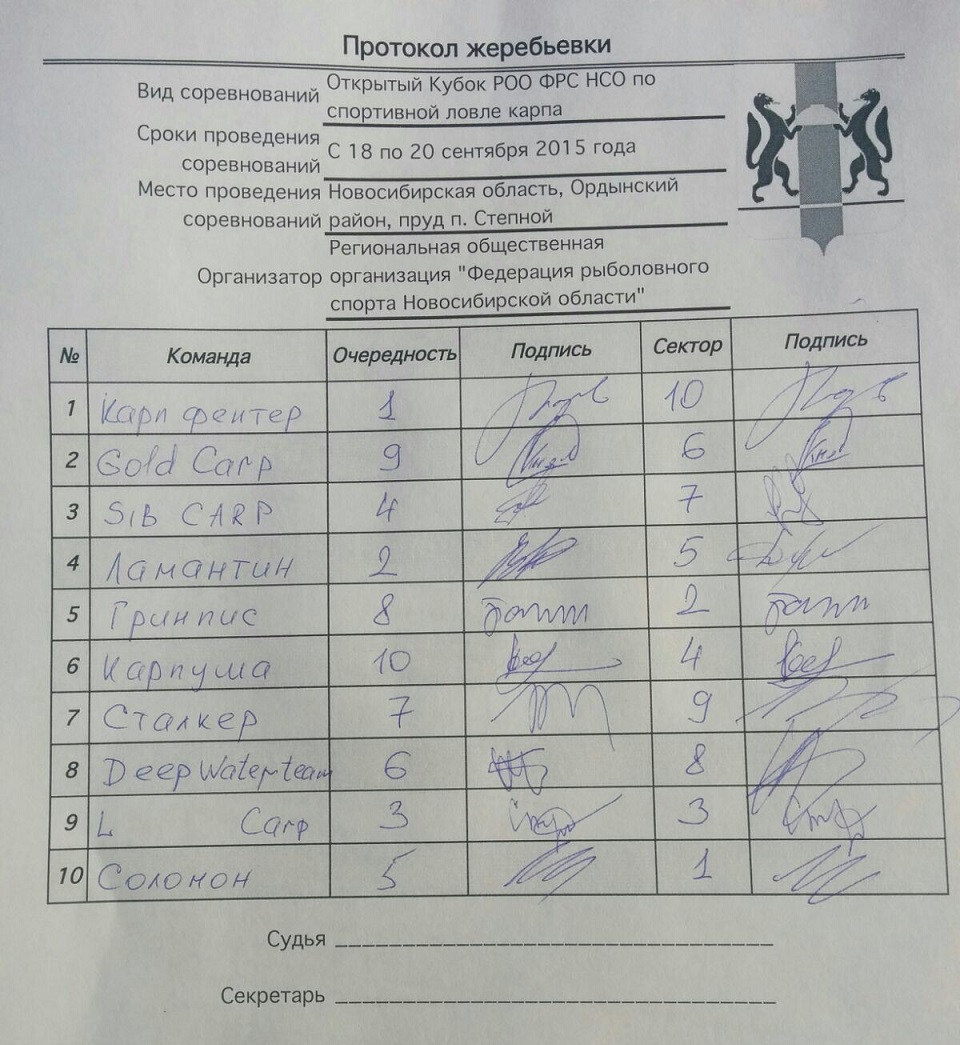 Протокол жеребьевки
Вид соревнований Открытый Кубок РОО ФРС НСО по
спортивной ловле карпа
Сроки проведения
соревнований С 18 по 20 сентября 2015 года
Место проведения Новосибирская область, Ордынский
соревнований район, пруд п. Степной
Региональная общественная
Организатор организация "Федерация рыболовного
спорта Новосибирской области"
№ Команда Очередность Подпись Сектор Подпись
1 Карп фентер 1 10
2 Gold Carp 9 6
3 SIB CARP 4 7
4 Ламантин 2 5
5 Гринпис 8 2
6 Карпума 10 4
7 Сталкер 7 9
8 Deep Water team 6 8
9 L Carp 3 3
10 Соломон 5 1
Судья
Секретарь